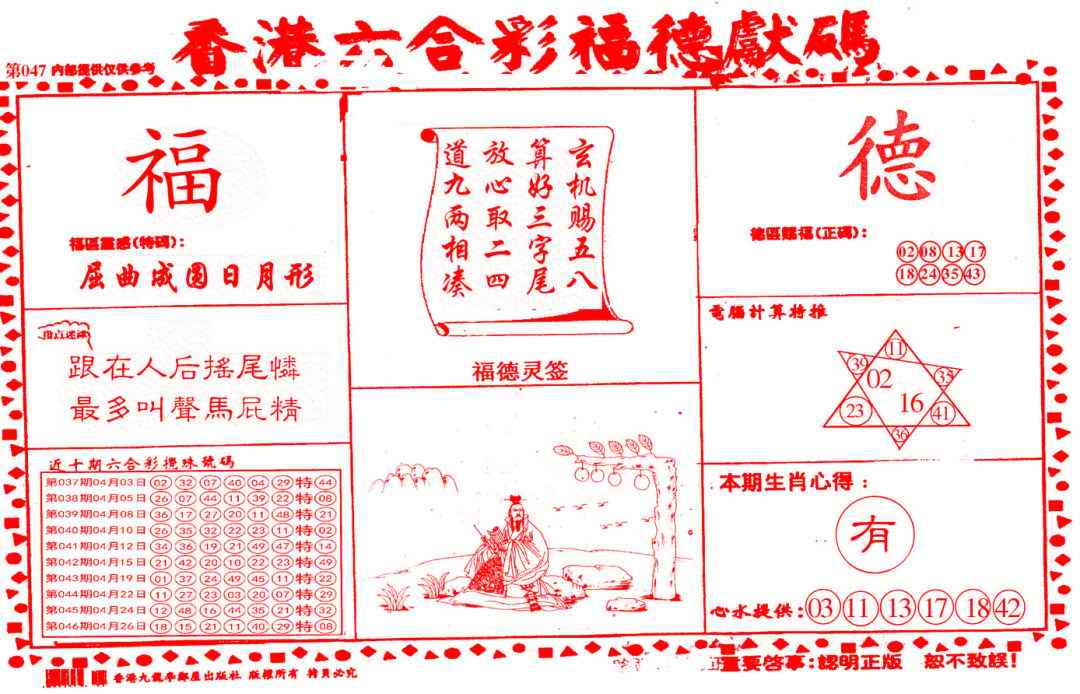 香港六合彩福德獻碼
第047 内部提供仅供参考
福
福區靈感(特碼):
屈曲成圆日月形
指点迷津
跟在人后搖尾憐
最多叫聲馬屁精
近十期六合彩攪珠號碼
第037期04月03日 02 32 07 40 04 29 特 44
第038期04月05日 26 07 44 11 39 22 特 08
第039期04月08日 36 17 27 20 11 48 特 21
第040期04月10日 26 35 32 22 23 11 特 02
第041期04月12日 34 36 19 21 49 47 特 14
第042期04月15日 21 42 20 10 22 23 特 49
第043期04月19日 01 37 24 49 45 11 特 22
第044期04月22日 11 27 23 03 20 07 特 29
第045期04月24日 12 48 16 44 35 21 特 32
第046期04月26日 18 15 21 11 40 29 特 08
玄机赐五八
算好三字尾
放心取二四
道九两相凑
福德灵签
德
德區賜福(正碼):
02 08 13 17
18 24 35 43
電腦計算特推
11
39 02 33
23 16 41
36
本期生肖心得:
有
心水提供: 03 11 13 17 18 42
重要啓事:認明正版 恕不致誤!
版權所有